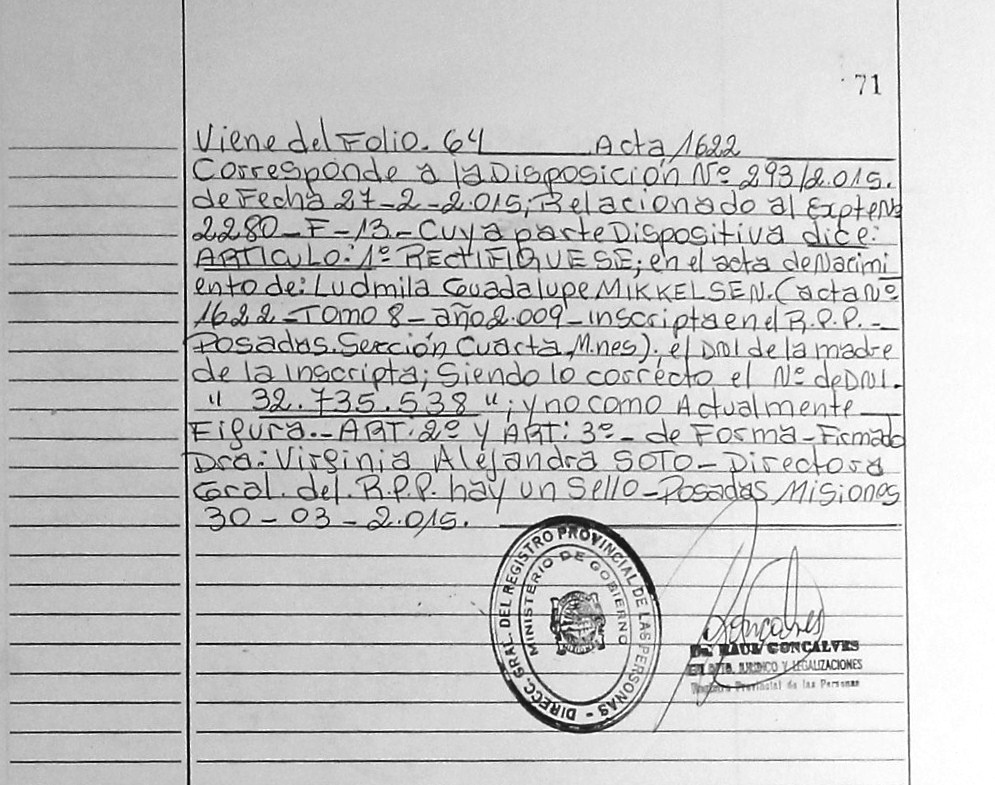 71
Viene del Folio. 64 Acta 1622
Corresponde a la Disposición Nº 293/2.015.
de Fecha 27-2-2.015; Relacionado al Expten
2280-F-13-Cuya parte Dispositiva dice:
ARTICULO: 1º RECTIFIQUESE; en el acta de Nacimi
ento de: Ludmila Guadalupe MIKKELSEN. (acta Nº
1622-Tomo 8-año 2.009-inscripta en el R.P.P.-
Posadas. Sección Cuarta, M.nes); el DNI de la madre
de la inscripta; Siendo lo correcto el Nº de DNI.
" 32.735.538 "; y no como Actualmente
Figura.- ART: 2º y ART: 3º- de Forma-Firmado
Dra: Virginia Alejandra SOTO-Directora
Gral. del. R.P.P. hay un Sello-Posadas Misiones
30-03-2.015.
DIRECC. GRAL. DEL REGISTRO PROVINCIAL DE LAS PERSONAS -
MINISTERIO DE GOBIERNO
Goncalves
Dr. RAUL GONCALVES
DPTO. JURIDICO Y LEGALIZACIONES
Registro Provincial de las Personas